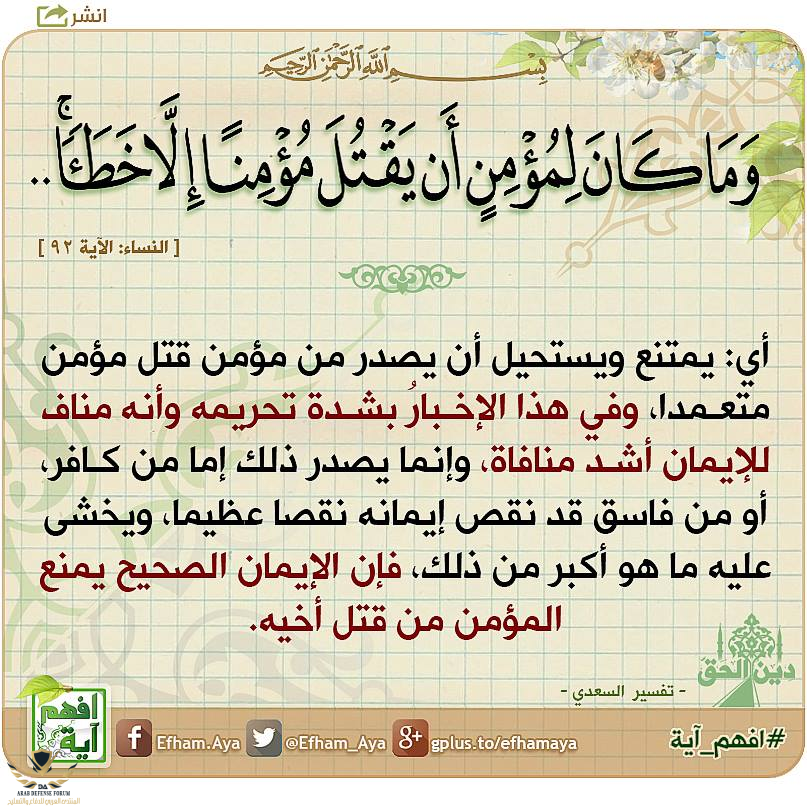 انشر
بِسْمِ اللَّهِ الرَّحْمَٰنِ الرَّحِيمِ
وَمَا كَانَ لِمُؤْمِنٍ أَن يَقْتُلَ مُؤْمِنًا إِلَّا خَطَـًٔا ۚ..
[ النساء: الآية ٩٢ ]
أي: يمتنع ويستحيل أن يصدر من مؤمن قتل مؤمن
متعمدا، وفي هذا الإخبارُ بشدة تحريمه وأنه مناف
للإيمان أشد منافاة، وإنما يصدر ذلك إما من كافر،
أو من فاسق قد نقص إيمانه نقصا عظيما، ويخشى
عليه ما هو أكبر من ذلك، فإن الإيمان الصحيح يمنع
المؤمن من قتل أخيه.
- تفسير السعدي -
دين الحق
#افهم_آية
gplus.to/efhamaya
@Efham_Aya
Efham.Aya
افهم
آية
DA
ARAB DEFENSE FORUM
المنتدى العربي للدفاع والتسليح